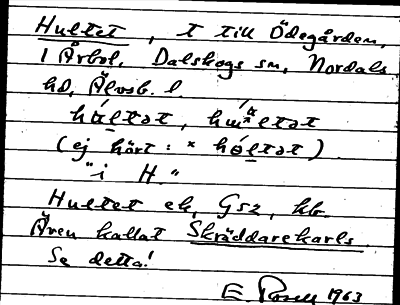 Hultet, t till Ödegården,
1 Årbol, Dalskogs sn, Nordals
hd, Älvsb. l.
hɑ́ltət, hɯ́ltət
(ej hört: * hɵltət)
"i H."
Hultet ek, Gsz, hb
Även kallat Skräddarekarls.
Se detta!
E. Rosell 1963